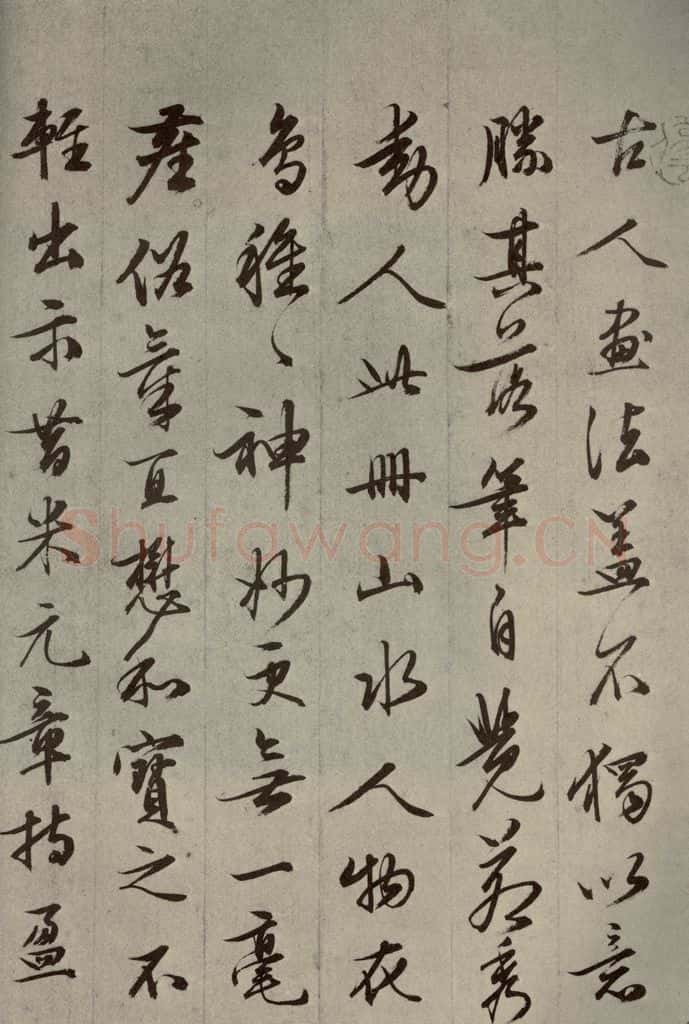 古人畫法蓋不獨以意
勝其落筆自覺蒼秀
動人此冊山水人物花
鳥種〻神妙更無一毫
塵俗氣宜懋和寶之不
輕出示昔米元章持盈
Shufawang.CN